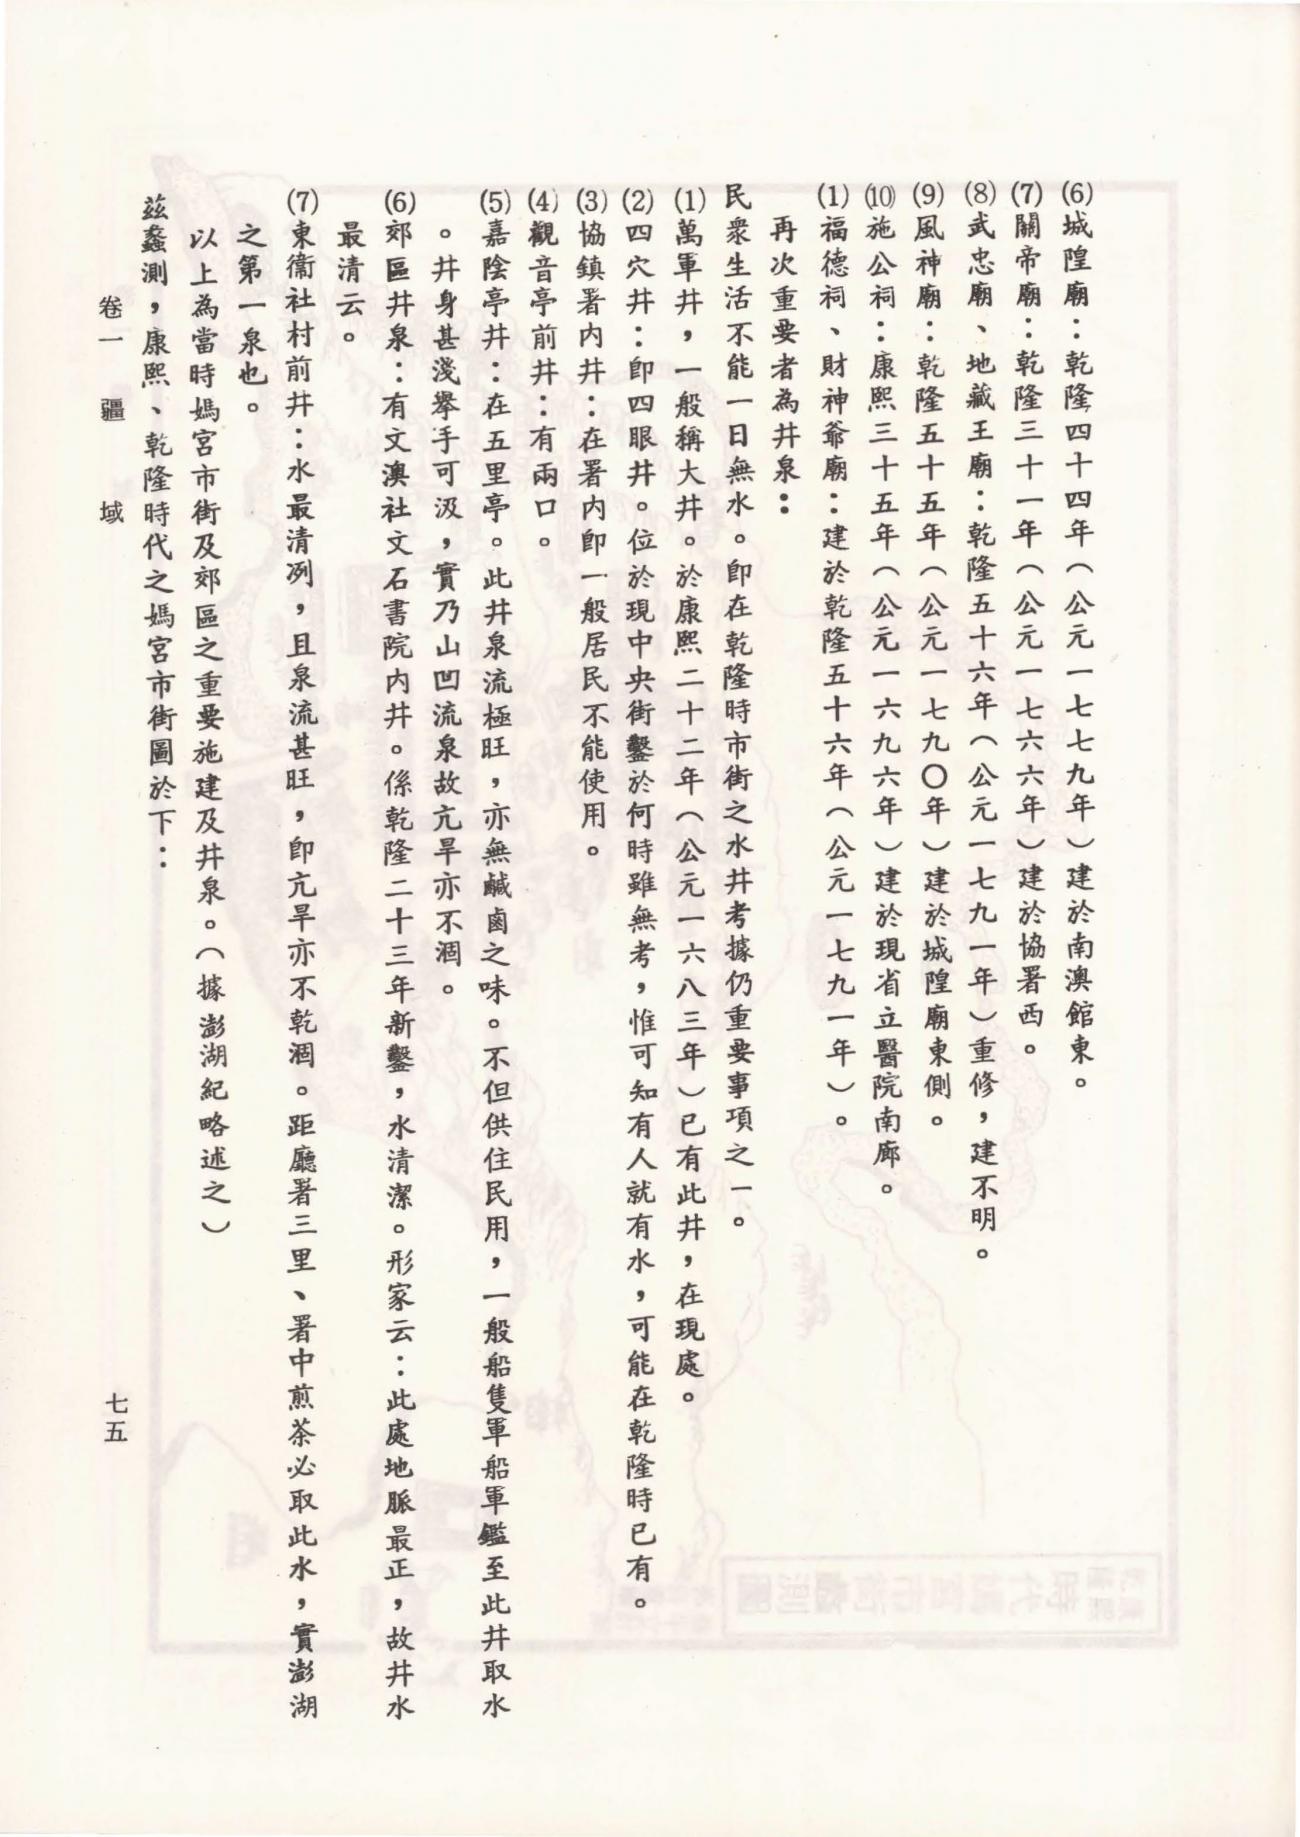 (6)城隍廟：乾隆四十四年（公元一七七九年）建於南澳館東。
(7)關帝廟：乾隆三十一年（公元一七六六年）建於協署西。
(8)武忠廟、地藏王廟：乾隆五十六年（公元一七九一年）重修，建不明。
(9)風神廟：乾隆五十五年（公元一七九〇年）建於城隍廟東側。
(10)施公祠：康熙三十五年（公元一六九六年）建於現省立醫院南廊。
(1)福德祠、財神爺廟：建於乾隆五十六年（公元一七九一年）。
再次重要者為井泉：
民衆生活不能一日無水。卽在乾隆時市街之水井考據仍重要事項之一。
(1)萬軍井，一般稱大井。於康熙二十二年（公元一六八三年）已有此井，在現處。
(2)四穴井：卽四眼井。位於現中央街鑿於何時雖無考，惟可知有人就有水，可能在乾隆時已有。
(3)協鎮署内井：在署内卽一般居民不能使用。
(4)觀音亭前井：有兩口。
(5)嘉陰亭井：在五里亭。此井泉流極旺，亦無鹹鹵之味。不但供住民用，一般船隻軍船軍鑑至此井取水
。井身甚淺擧手可汲，實乃山凹流泉故亢旱亦不涸。
(6)郊區井泉：有文澳社文石書院内井。係乾隆二十三年新鑿，水清潔。形家云：此處地脈最正，故井水
最清云。
(7)東衞社村前井：水最清冽，且泉流甚旺，卽亢旱亦不乾涸。距廳署三里、署中煎茶必取此水，實澎湖
之第一泉也。
以上為當時媽宮市街及郊區之重要施建及井泉。（據澎湖紀略述之）
茲蠡測，康熙、乾隆時代之媽宮市街圖於下：
卷一　疆　域
七五